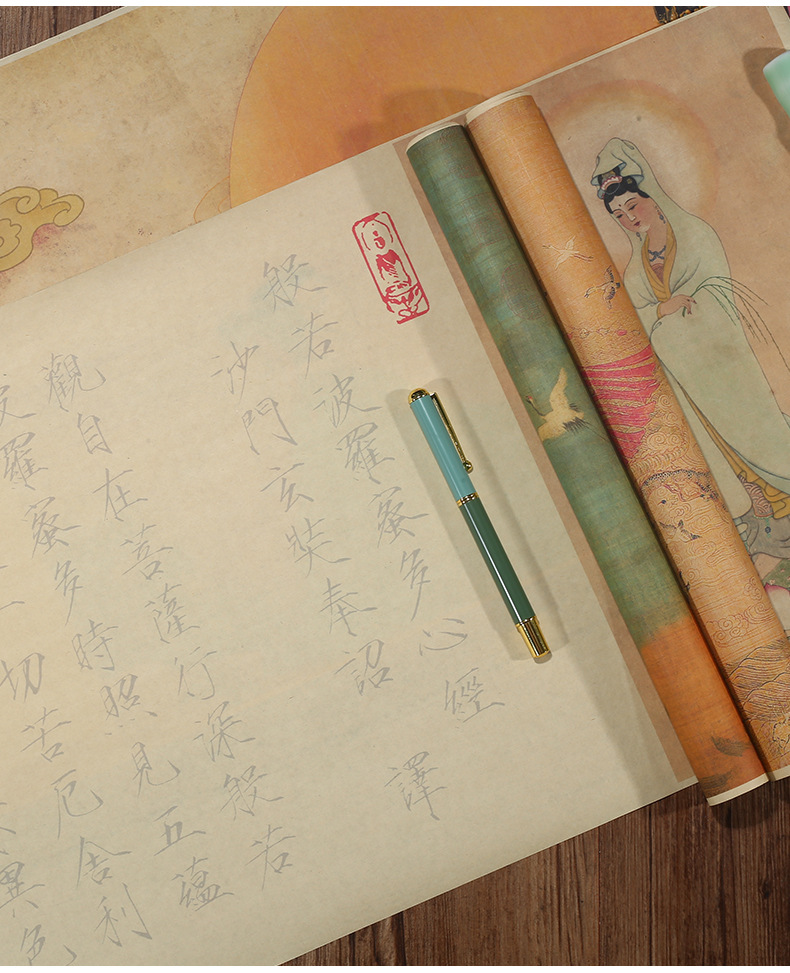 般若波羅蜜多心經
沙門玄奘奉詔譯
觀自在菩薩行深般若
波羅蜜多時照見五蘊
一切苦厄舍利
異色